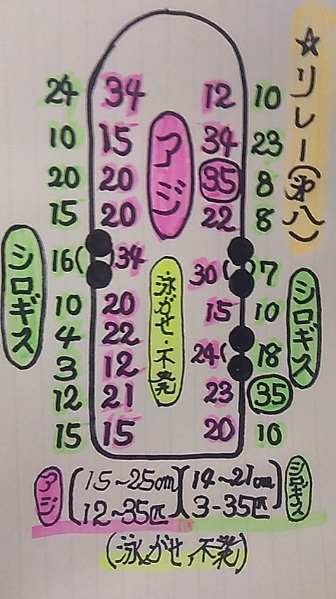 ☆リレー(第八)
24 34 12 10
10 15 34 23
20 20 35 8
15 20 22 8
16( 34 30( 7
10 20 15 10
4 22 24( 18
3 12
12 21 23 35
15 15 20 10
アジ
泳がせ・不発
シロギス
シロギス
アジ (15~25cm)(14~21cm) シロギス
12~35匹 3-35匹
(泳がせ,不発)